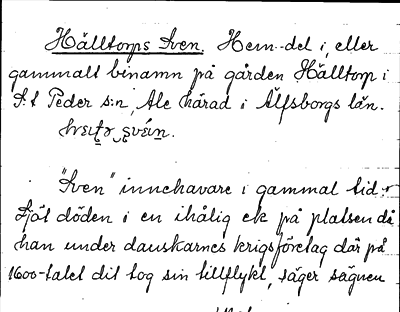 Hälltorps Sven. Hem-del i, eller
gammalt binamn på gården Hälltorp i
S:t Peder s:n, Ale härad i Älfsborgs län.
"Sven" innehavare i gammal tid
döden i en ihålig ek på platsen då
han under danskarnes krigsföretag där på
1600-talet dit tog sin tillflykt, säger sägnen